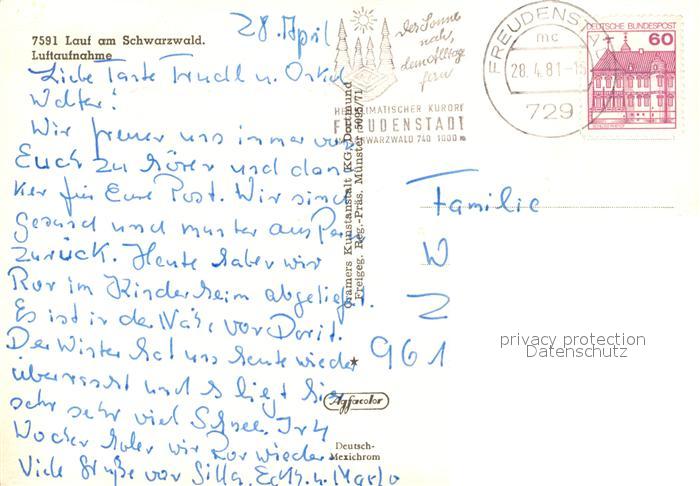 28. April
7591 Lauf am Schwarzwald.
Luftaufnahme
Liebe Tante Trudl u. Onkel
Walter!
Wir freuen uns immer von
Euch zu hören und dan-
ken für Eure Post. Wir sind
gesund und munter aus
zurück. Heute haben wir
im Kinderheim abgeliefert.
Es ist in der Nähe von Dorit.
Der Winter hat uns heute wieder
überrascht und es liegt hier
sehr sehr viel Schnee. In 4
Wochen holen wir wieder.
Viele Grüße von
Cramers Kunstanstalt KG. Dortmund
Freigeg. Reg.-Präs. Münster 5095/71
Agfacolor
Deutsch-
Mexichrom
der Sonne
nah,
dem Alltage
fern
HEILKLIMATISCHER KURORT
FREUDENSTADT
SCHWARZWALD 740 1000 m
FREUDENSTADT
mc
28.4.81-15
729
DEUTSCHE BUNDESPOST
60
Familie
W
Z
961
privacy protection
Datenschutz